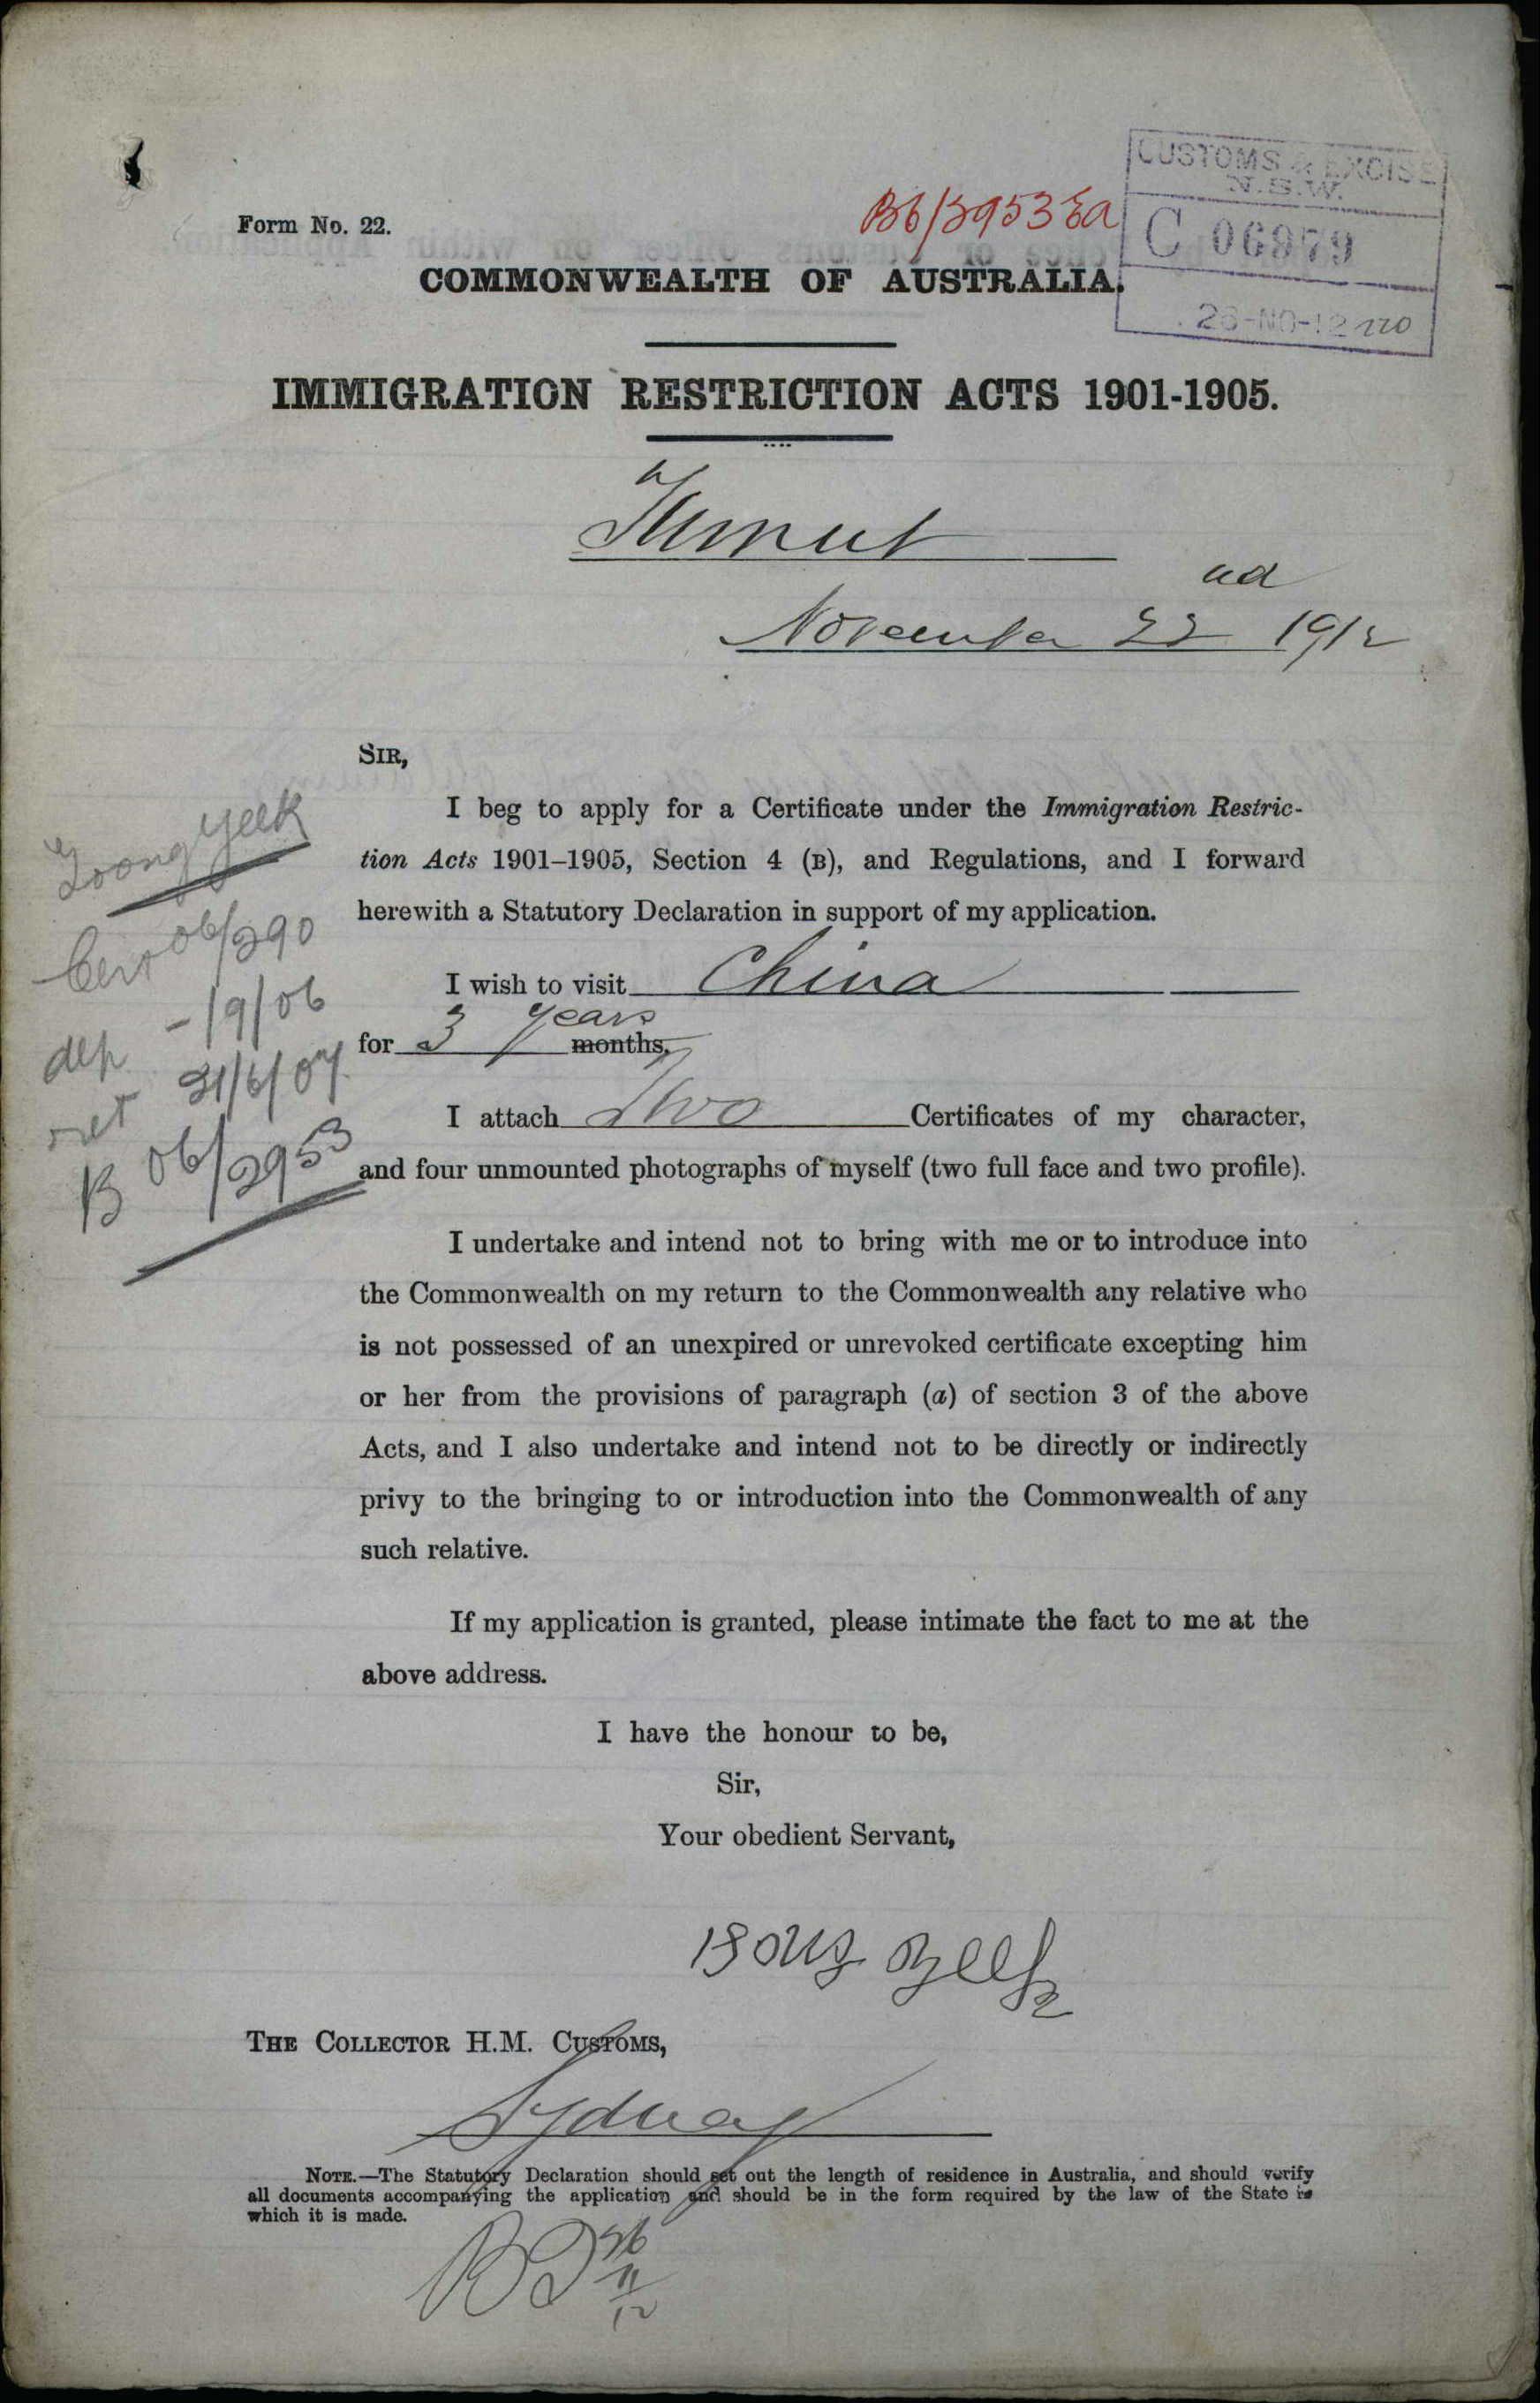 CUSTOMS & EXCISE
N.S.W.
C 06979
Form No. 22.
COMMONWEALTH OF AUSTRALIA.
IMMIGRATION RESTRICTION ACTS 1901-1905.
Tumut
nd
November 22 1912
SIR,
I beg to apply for a Certificate under the Immigration Restric-
tion Acts 1901-1905, Section 4 (B), and Regulations, and I forward
herewith a Statutory Declaration in support of my application.
I wish to visit China
years
for 3 months.
I attach Two Certificates of my character,
and four unmounted photographs of myself (two full face and two profile).
I undertake and intend not to bring with me or to introduce into
the Commonwealth on my return to the Commonwealth any relative who
is not possessed of an unexpired or unrevoked certificate excepting him
or her from the provisions of paragraph (a) of section 3 of the above
Acts, and I also undertake and intend not to be directly or indirectly
privy to the bringing to or introduction into the Commonwealth of any
such relative.
Yeek
Cert 06/290
dep -/9/06
ret 21/6/07
B 06/2953
If my application is granted, please intimate the fact to me at the
above address.
I have the honour to be,
Sir,
Your obedient Servant,
THE COLLECTOR H.M. CUSTOMS,
Sydney
NOTE.—The Statutory Declaration should set out the length of residence in Australia, and should verify
all documents accompanying the application and should be in the form required by the law of the State in
which it is made.